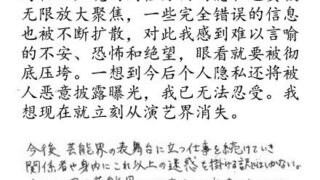 无限放大聚焦，一些完全错误的信息
也被不断扩散，对此我感到难以言喻
的不安、恐怖和绝望，眼看就要被彻
底压垮。一想到今后个人隐私还将被
人恶意披露曝光，我已无法忍受。我
想现在就立刻从演艺界消失。
今後 芸能界の表舞台に立つ仕事を続けていき
関係者や身内にこれ以上の迷惑を掛ける訳にはいかない。